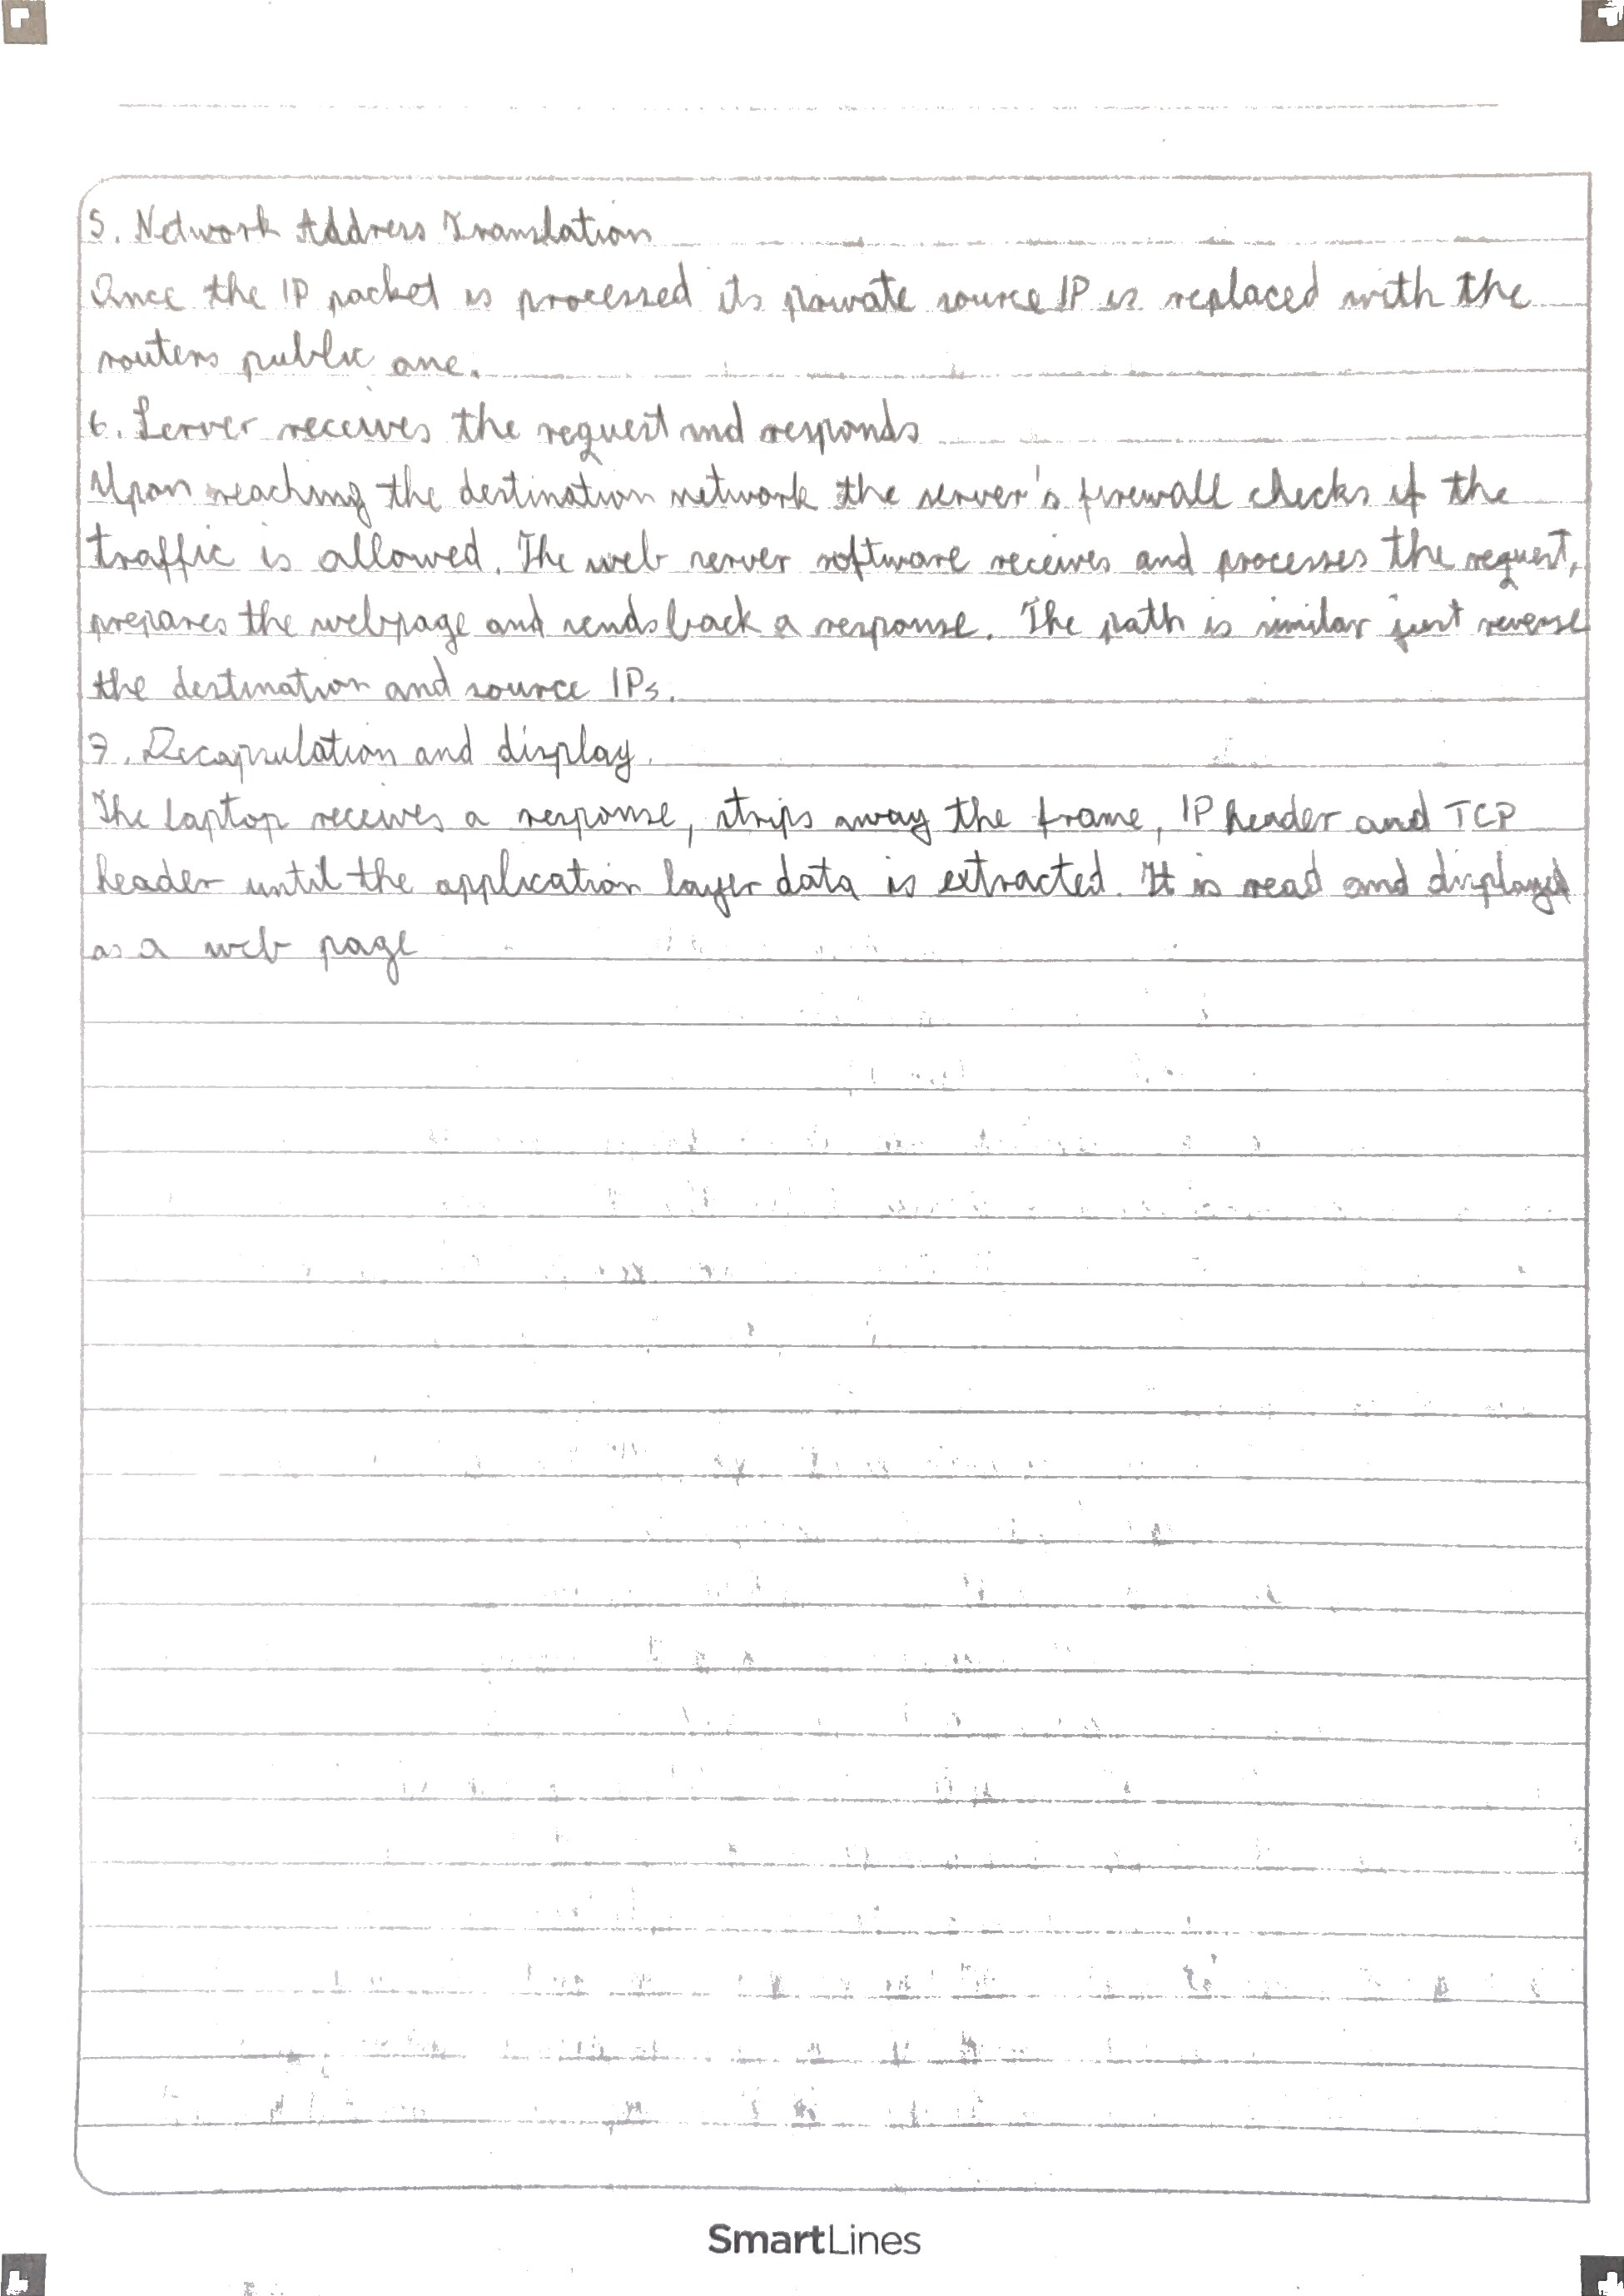 5. Network Address Translation
Once the IP packet is processed its private source IP is replaced with the
routers public one.
6. Server receives the request and responds
Upon reaching the destination network the server's firewall checks if the
traffic is allowed. The web server software receives and processes the request,
prepares the webpage and sends back a response. The path is similar just reverse
the destination and source IPs.
7. Decapsulation and display.
The laptop receives a response, strips away the frame, IP header and TCP
header until the application layer data is extracted. It is read and displayed
as a web page
SmartLines